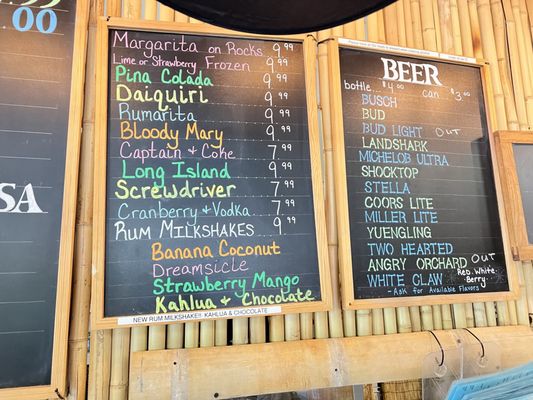 00
SA
Margarita on Rocks 9.99
Lime or Strawberry Frozen 9.99
Pina Colada 9.99
Daiquiri 9.99
Rumarita 9.99
Bloody Mary 9.99
Captain & Coke 7.99
Long Island 9.99
Screwdriver 7.99
Cranberry & Vodka 7.99
Rum Milkshakes 9.99
Banana Coconut
Dreamsicle
Strawberry Mango
Kahlua & Chocolate
NEW RUM MILKSHAKE!! KAHLUA & CHOCOLATE
BEER
bottle... $4.00 can $3.00
BUSCH
BUD
BUD LIGHT OUT
LANDSHARK
MICHELOB ULTRA
SHOCKTOP
STELLA
COORS LITE
MILLER LITE
YUENGLING
TWO HEARTED
ANGRY ORCHARD OUT
WHITE CLAW Red. White. Berry..
- Ask for Available Flavors